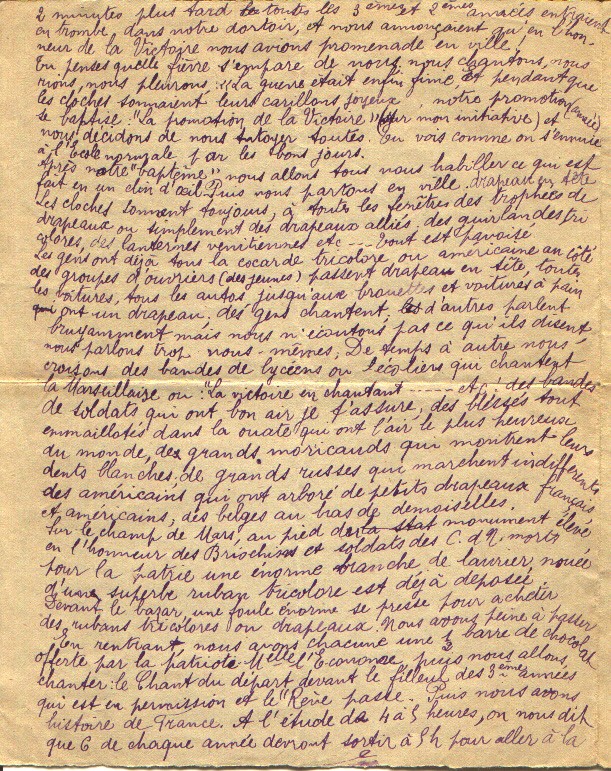 2 minutes plus tard toutes les 3èmes et 2èmes années entraient
en trombe dans notre dortoir, et nous annonçaient qu'en l'hon-
neur de la Victoire nous avions promenade en ville.
Tu penses quelle fierre s'empare de nous, nous chantons, nous
rions, nous pleurons. La guerre était enfin finie, Et pendant que
les cloches sonnaient leurs carillons joyeux, notre promotion (année)
se baptise: "La promotion de la Victoire" (sur mon initiative) et
nous décidons de nous tutoyer toutes. Tu vois comme on s'ennuie
à l'Ecole normale par les bons jours.
Après notre "baptême" nous allons tous nous habiller ce qui est
fait en un clin d'œil. Puis nous partons en ville. drapeau en tête
Les cloches sonnent toujours, à toutes les fenêtres des trophées de
drapeaux ou simplement des drapeaux alliés, des guirlandes tri
colores, des lanternes venitiennes etc --- tout est pavoisé
Les gens ont déjà tous la cocarde tricolore ou américaine au côté
des groupes d'ouvriers (des jeunes) passent drapeau en tête, toutes
les voitures, tous les autos jusqu'aux brouettes et voitures à pain
qui ont un drapeau. des gens chantent, d'autres parlent
bruyamment mais nous n'écoutons pas ce qu'ils disent,
nous parlons trop nous-mêmes. De temps à autre nous
croisons des bandes de lycéens ou d'écoliers qui chantent
la Marseillaise ou: "La victoire en chantant ------- etc! des bandes
de soldats qui ont bon air je t'assure, des blessés tout
emmaillotés dans la ouate qui ont l'air le plus heureux
du monde, des grands moricauds qui montrent leurs
dents blanches, de grands russes qui marchent indifférents
des américains qui ont arboré de petits drapeaux français
et américains, des belges au bras de demoiselles.
Sur le champ de Mars, au pied de la stat monument élevé
en l'honneur des Briochins et soldats des C. d N. morts
pour la patrie une énorme branche de laurier, nouée
d'une superbe ruban tricolore est déjà déposée
Devant le bazar, une foule énorme se presse pour acheter
des rubans tricolores ou drapeaux. Nous avons peine à passer
En rentrant, nous avons chacune une barre de chocolat
offerte par la patriote Melle l'Econome, puis nous allons,
chanter: le Chant du départ devant le filleul des 3èmes années
qui est en permission et le "Rêve passe. Puis nous avons
histoire de France. A l'étude de 4 à 5 heures, on nous dit
que 6 de chaque année devront sortir à 5h pour aller à la